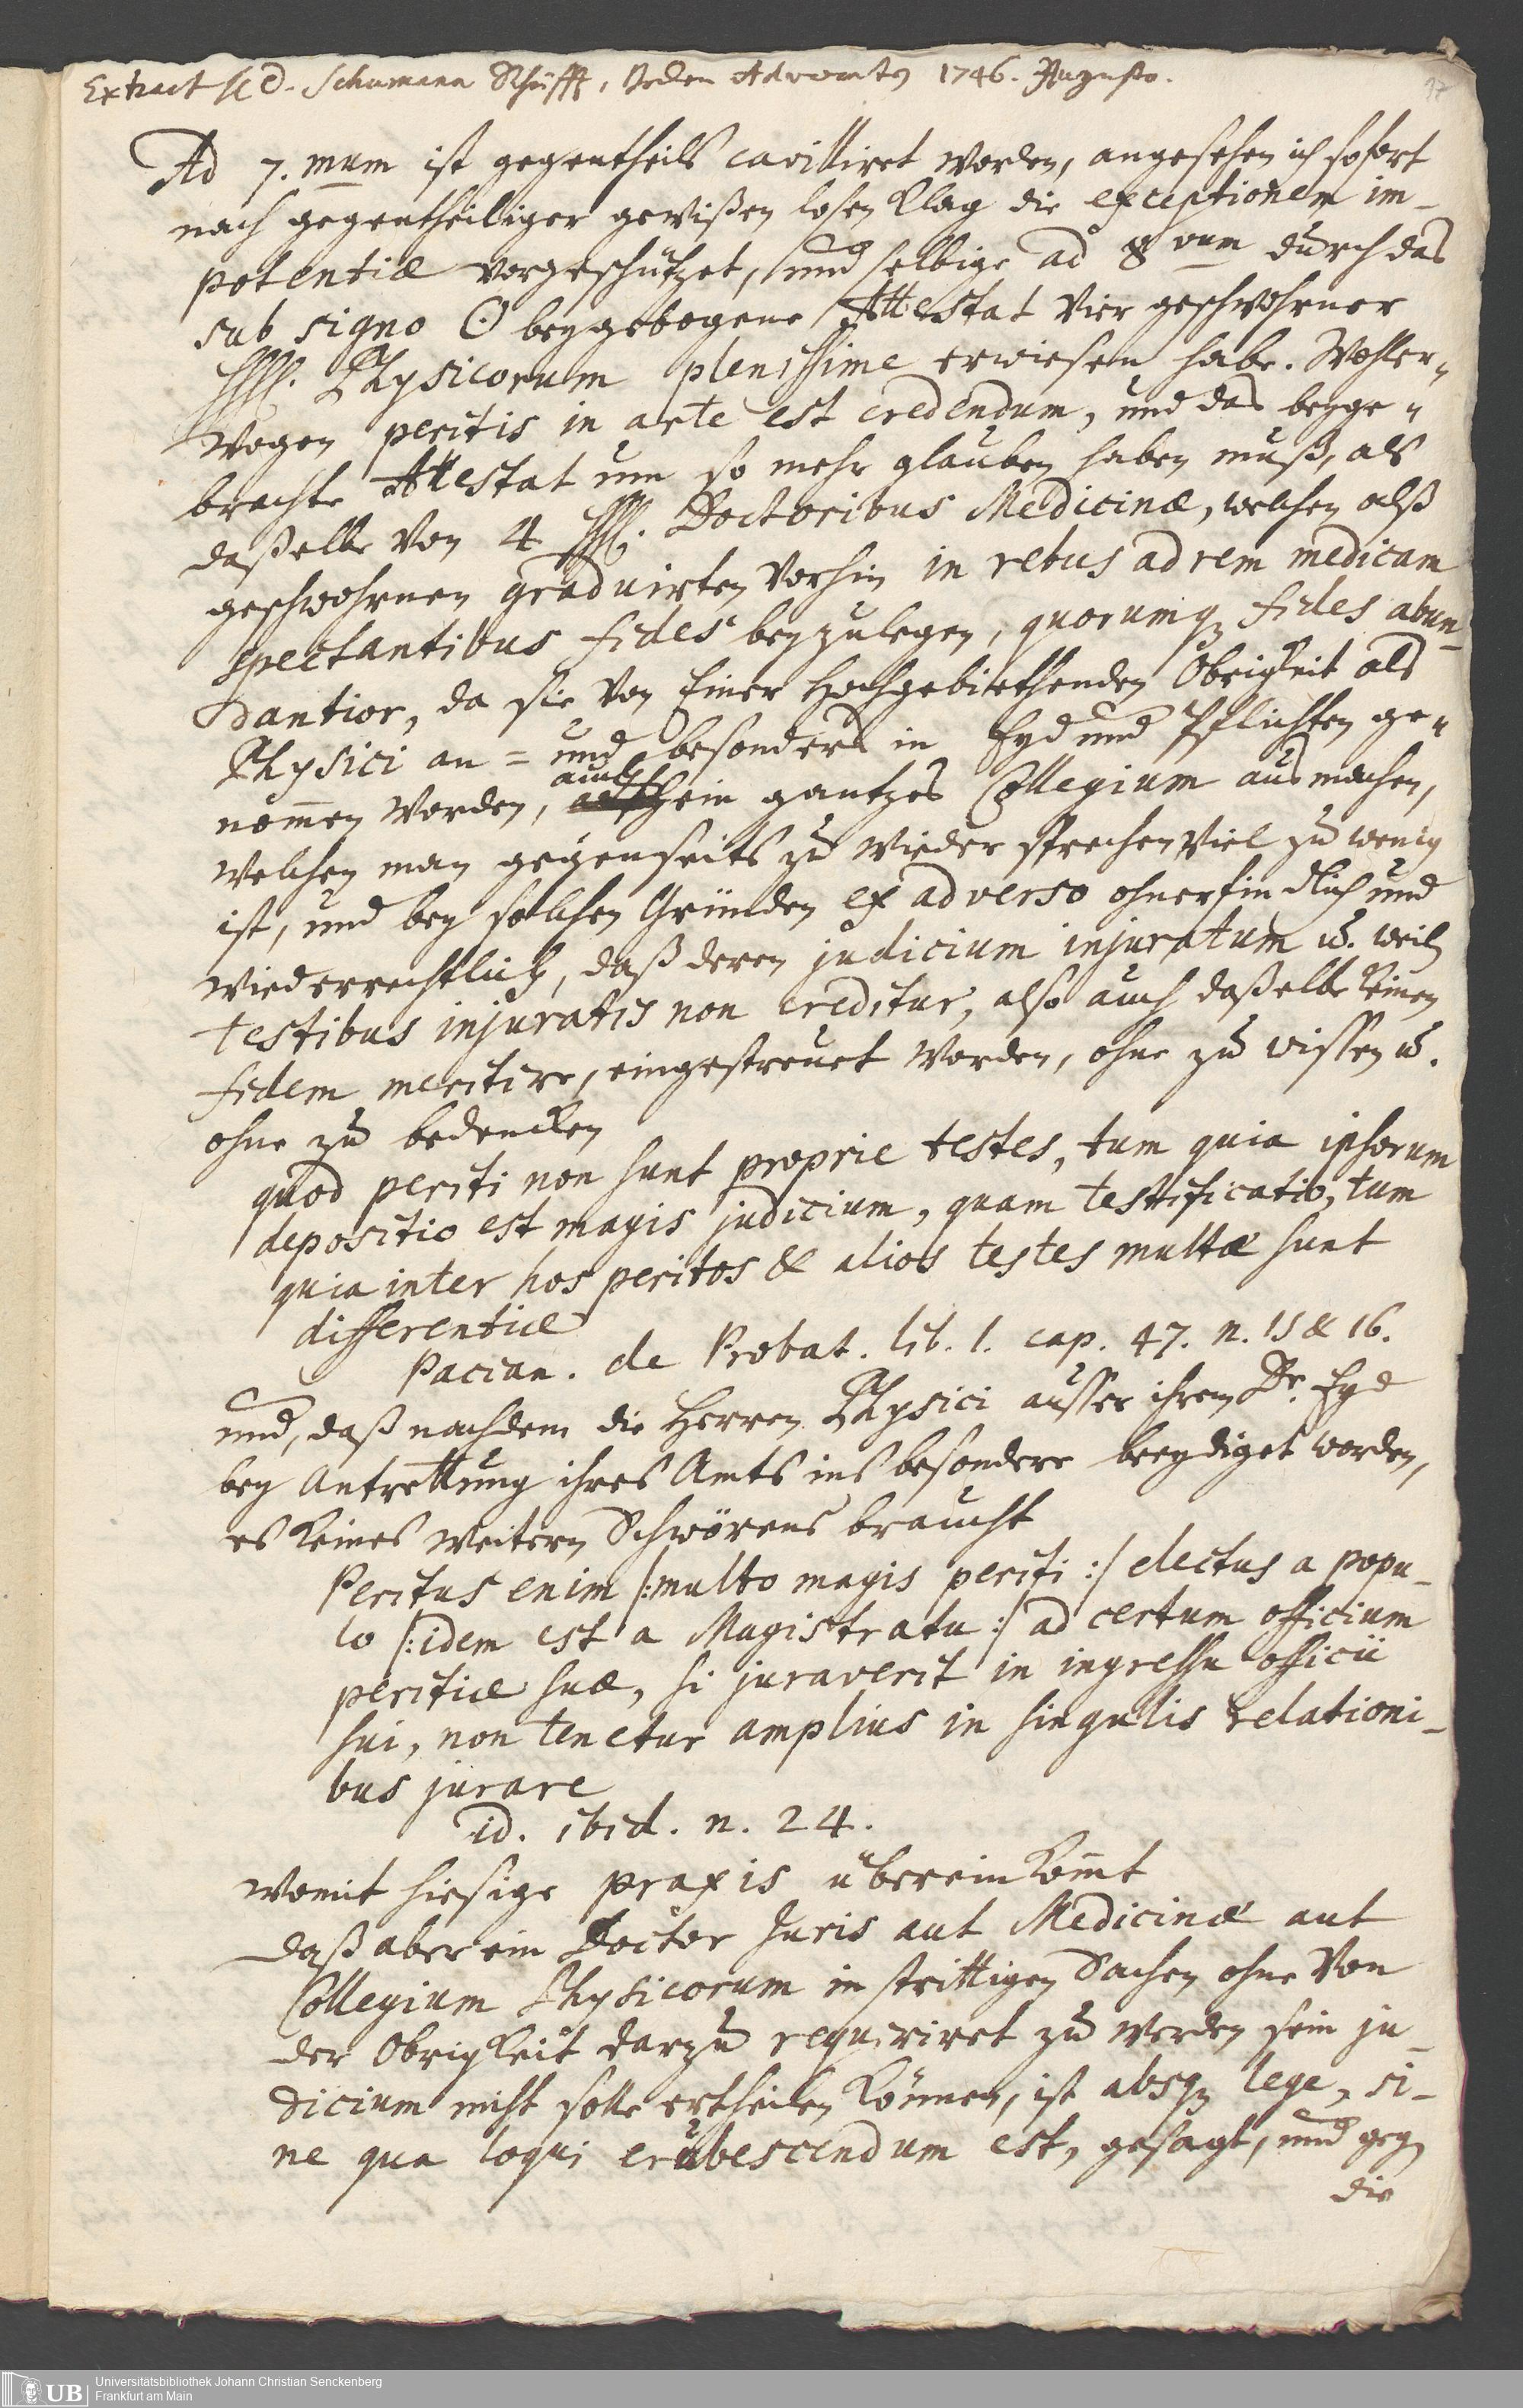 Extract D. Schumann Schrifft, Adwocaten 1746. Augusto.
97
Ad 7.mum ist gegentheils cavilliret worden, angesehen ich sofort
nach gegentheiliger gewißen losen Klag die exceptionem im-
potentiæ vorgeschützet, und selbige ad 8vum durch das
sub signo ☉ beygebogene Attestat vier geschwohrner
HHH. Physicorum plenissime erwiesen habe. Wohler-
wogen peritis in arte est credendum, und das beyge-
brachte Attestat um so mehr glauben haben muß, als
daßelbe von 4 HHH. Doctoribus Medicinæ, welchen alß
geschwohrnen graduirten vorhin in rebus ad rem medicam
spectantibus fides beyzulegen, quorumq; fides abun-
dantior, da sie von Einer Hochgebiethenden Obrigkeit als
Physici an- und besonders in Eyd und Pflichten ge-
nom̄en worden, auch ein gantzes Collegium ausmachen,
welchen man gegenseits zu wieder sprechen viel zu wenig
ist, und bey solchen Gründen ex adverso ohnerfindlich und
wiederrechtlich, daß deren judicium injuratum u. weil
testibus injuratis non creditur, also auch daßelbe keinen
fidem meritire, eingestreuet worden, ohne zu wissen u.
ohne zu bedencken
quod periti non sunt proprie testes, tum quia ipsorum
depositio est magis judicium, quam testificatio, tum
quia inter hos peritos & alios testes multæ sunt
differentiæ
Pacian. de Probat. lib. 1. cap. 47. n. 15 & 16.
und, daß nachdem die Herren Physici ausser ihrem Dr. Eyd
bey Antrettung ihres Amts ins besondere beeydiget worden,
es keines weitern Schwörens braucht
Peritus enim /:multo magis periti:/ electus a popu-
lo /:idem est a Magistratu:/ ad certum officium
peritiæ suæ, si juraverit in ingressu officii
sui, non tenetur amplius in singulis relationi-
bus jurare
id. ibid. n. 24.
womit hiesige praxis übereinkom̄t
daß aber ein Doctor Juris aut Medicinæ aut
Collegium Physicorum in strittigen Sachen ohne von
der Obrigkeit darzu requiriret zu werden sein ju-
dicium nicht solle ertheilen können, ist absq; lege, si-
ne qua loqui erubescendum est, gesagt, und geg.
die
UB
Universitätsbibliothek Johann Christian Senckenberg
Frankfurt am Main